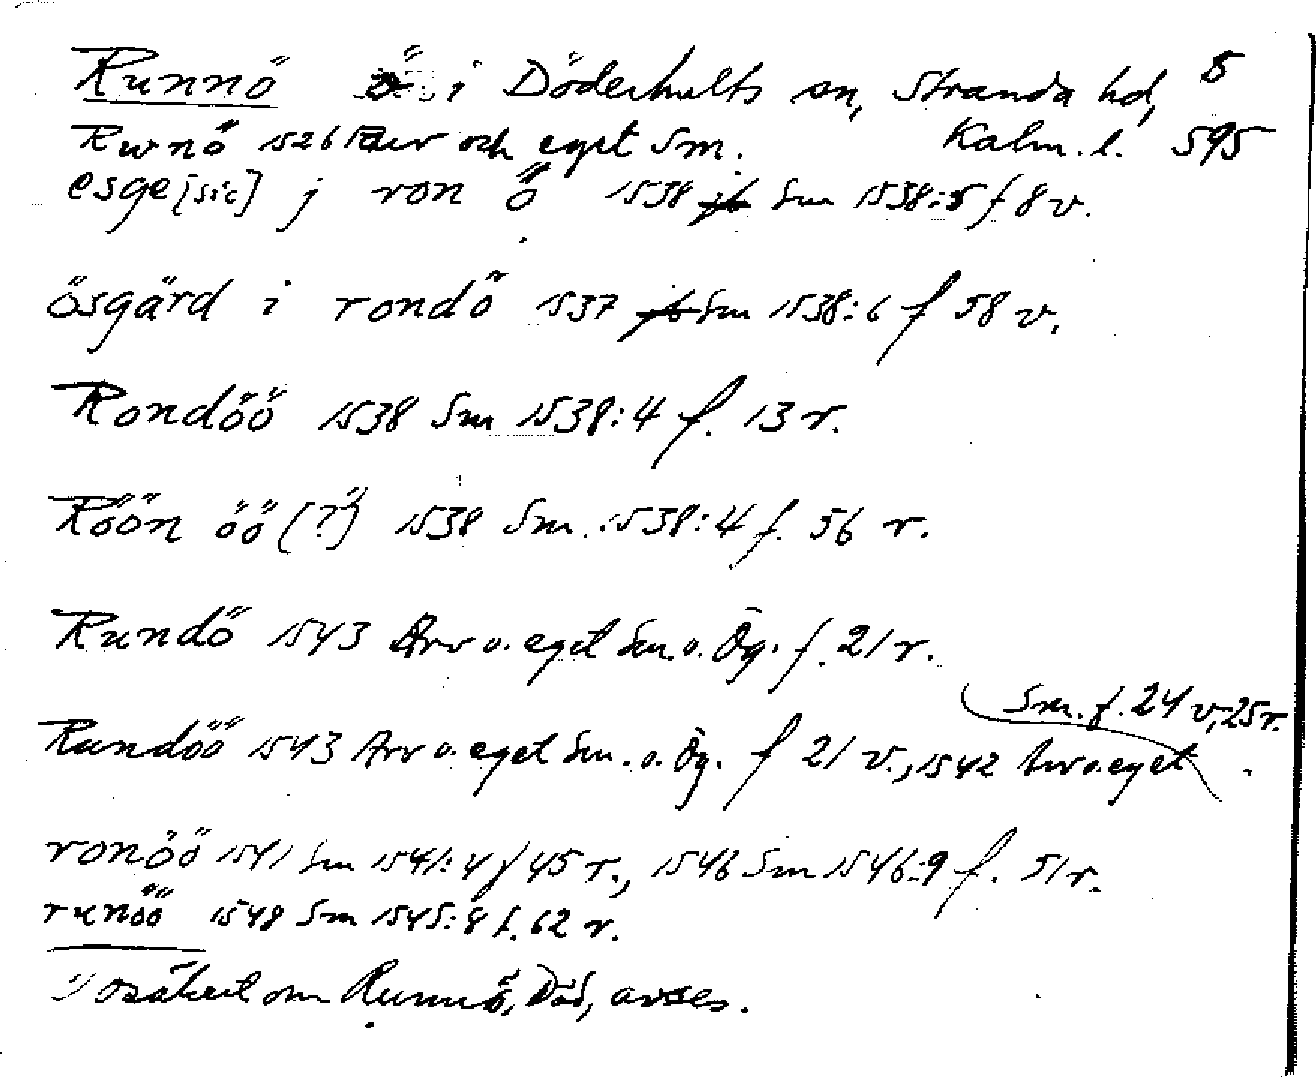 Runnö ö i Döderhults sn, Stranda hd, 5
Runö 1526 Räv och eget Sm. Kalm. l. 595
esge [sic] j ron ö 1538 Sm 1538:5 f 8 v.
ösgärd i rondö 1537 Sm 1538:6 f 58 v.
Rondöö 1538 Sm 1538:4 f. 13 r.
Röön öö (?¹⁾) 1538 Sm. 1538:4 f. 56 r.
Rundö 1543 Arv o. eget Sm. o. Ög. f. 21 r.
Sm. f. 24 v, 25 r.
Rundöö 1543 Arv o. eget Sm. o. Ög. f 21 v., 1542 Arv o. eget
ronöö 1541 Sm 1541:4 f 45 r., 1546 Sm 1546:9 f. 51 r.
runöö 1548 Sm 1545:8 f. 62 r.
¹⁾ osäkert om Runnö, Död, avses.